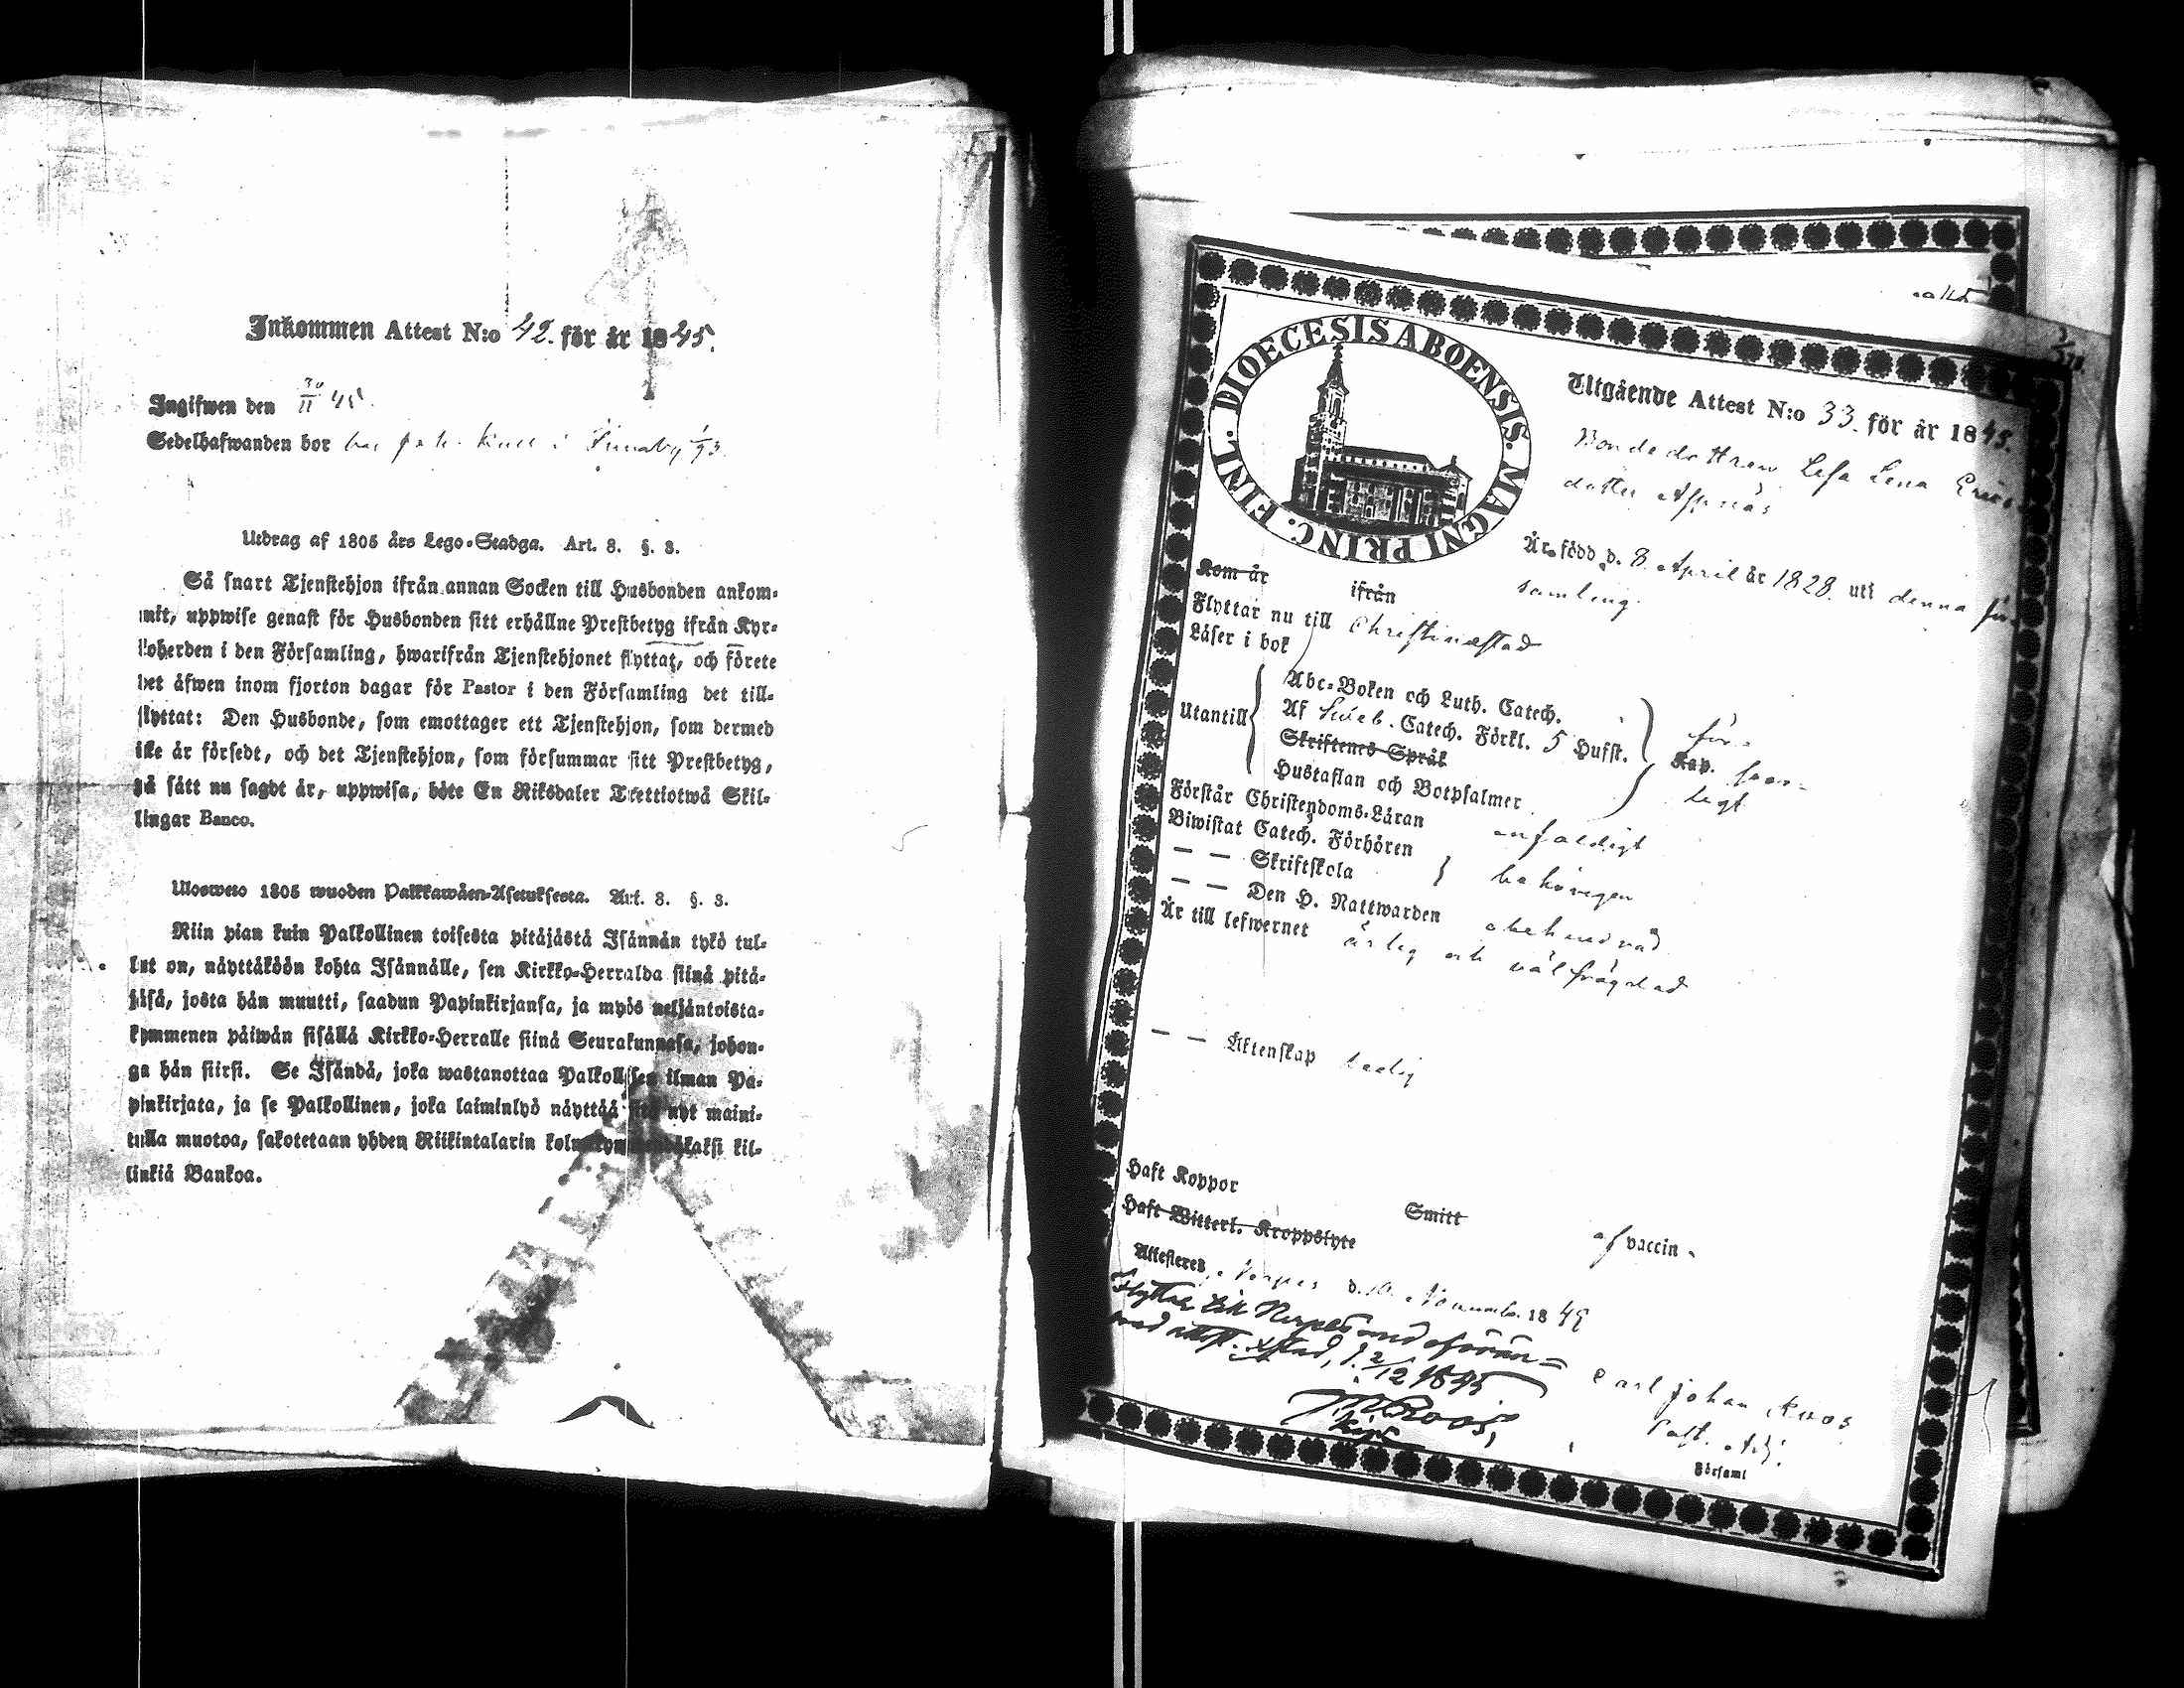 Inkommen Attest N:o 42. för år 1845.
Ingifwen den 30/11 45.
Sedelhafwanden bor
Utdrag af 1805 års Lego-Stadga. Art. 8. §. 3.
Så snart Tjenstehjon ifrån annan Socken till Husbonden ankom-
mit, uppwise genast för Husbonden sitt erhållne Prestbetyg ifrån Kyr-
koherden i den Församling, hwarifrån Tjenstehjonet flyttat, och förete
det äfwen inom fjorton dagar för Pastor i den Församling det till-
flyttat: Den Husbonde, som emottager ett Tjenstehjon, som dermed
icke är försedt, och det Tjenstehjon, som försummar sitt Prestbetyg,
på sätt nu sagdt är, uppwisa, böte En Riksdaler Trettiotwå Skil-
lingar Banco.
Ulosweto 1805 wuoden Palkkawäen-Asetuksesta. Art. 8. §. 3.
Niin pian kuin Palkollinen toisesta pitäjästä Isännän tykö tul-
lut on, näyttäköön kohta Isännälle, sen Kirkko-Herralda siinä pitä-
jäsä, josta hän muutti, saadun Papinkirjansa, ja myös neljäntoista-
kymmenen päiwän sisällä Kirkko-Herralle siinä Seurakunnasa, johon-
ga hän siirsi. Se Isändä, joka wastanottaa Palkollisen ilman Pa-
pinkirjata, ja se Palkollinen, joka laiminlyö näyttää sitä nyt maini-
tulla muotoa, sakotetaan yhden Riikintalarin kolmekymmendäkaksi kil-
linkiä Bankoa.
FINL. DIOECESIS ABOENSIS. MAGNI PRINC.
Utgående Attest N:o 33. för år 1845.
Bondedottren Lisa Lena Erics
dotter Aspnäs
Är född d. 8 April år 1828. uti denna för
samling.
Kom år ifrån
Flyttar nu till Christinæstad
Läser i bok
Utantill
Abc-Boken och Luth. Catech.
Af Sveb. Catech. Förkl. 5 Hufst.
Skriftenes Språk Kap.
Hustaflan och Botpsalmer
för-
swar-
ligt
Förstår Christendoms-Läran enfaldigt
Biwistat Catech. Förhören
— — Skriftskola behörigen
— — Den H. Nattwarden obehindrad
Är till lefwernet ärlig och välfrägdad
— — Äktenskap ledig
Haft Koppor Smitt af vaccin
Haft Witterl. Kroppslyte
Attesteres, Nerpes d. 10. Novemb. 1845
Flyttar till Nerpes med oförän-
drad attest. Xstad, d. 2/12 1845
Carl Johan Roos
Past. Adj.
Församl